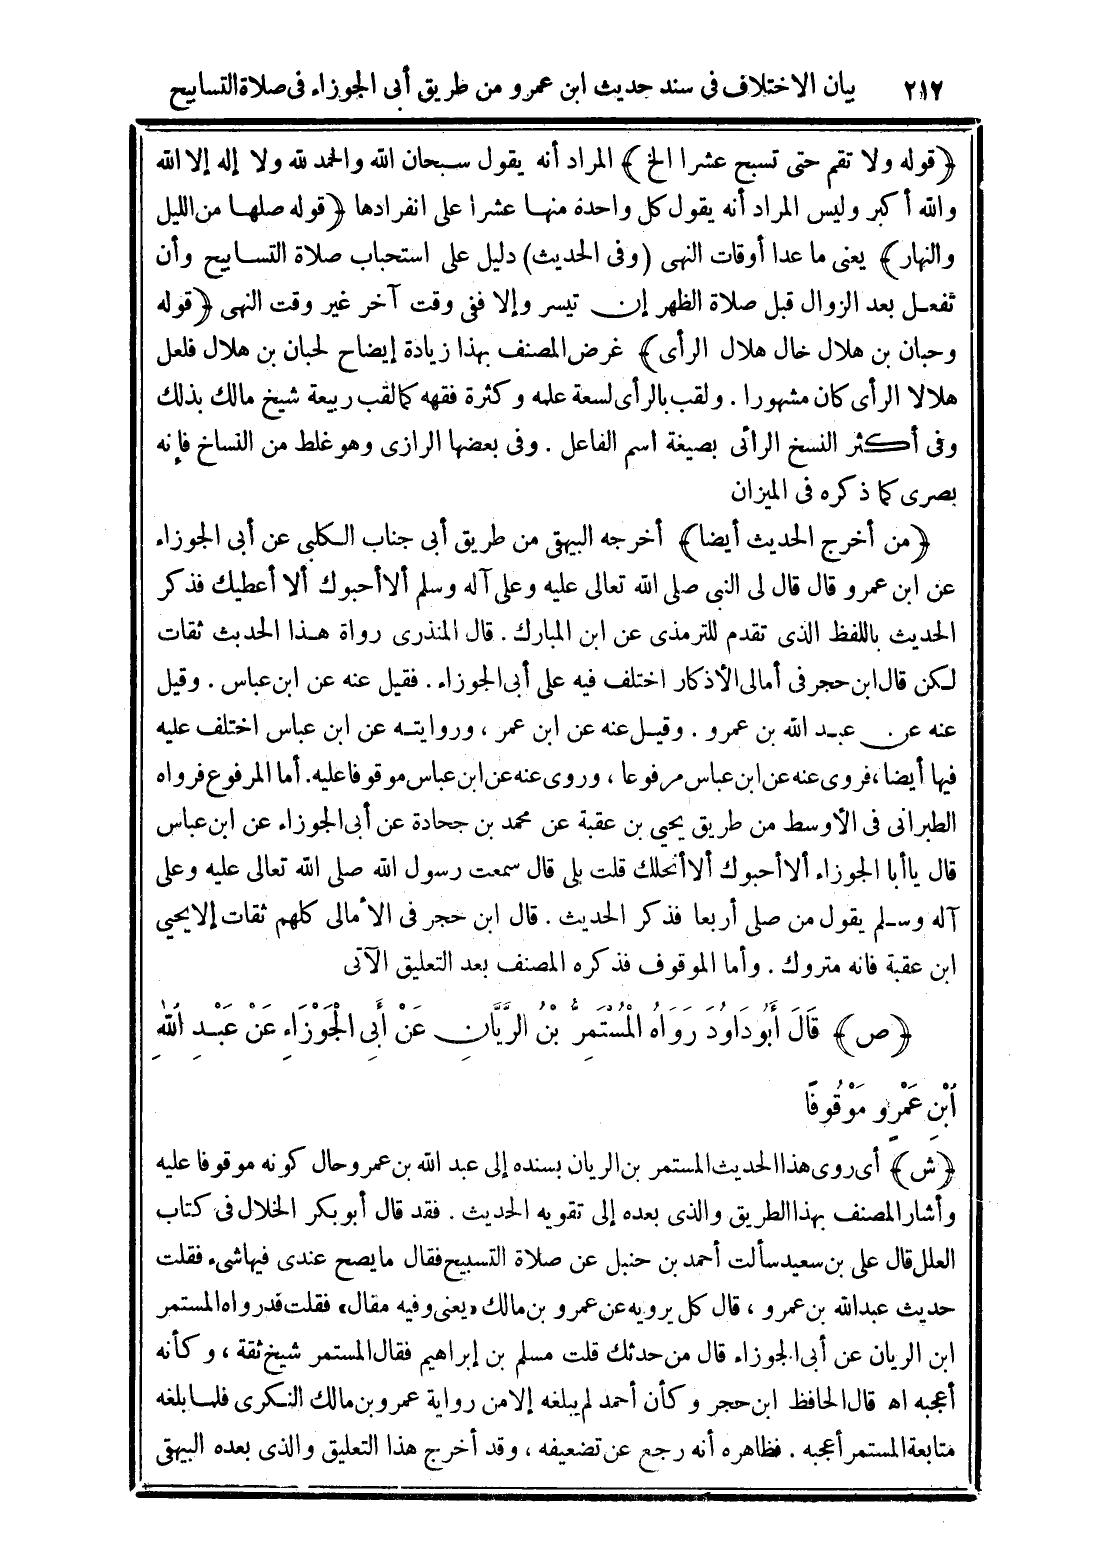 ٢١٧ بيان الاختلاف فى سند حديث ابن عمرو من طريق أبى الجوزاء فى صلاة التسابيح
﴿قوله ولا تقم حتى تسبح عشرا الخ﴾ المراد أنه يقول سبحان الله والحمد لله ولا إله إلا الله
والله أكبر وليس المراد أنه يقول كل واحدة منها عشرا على انفرادها ﴿قوله صلها من الليل
والنهار﴾ يعنى ما عدا أوقات النهى (وفى الحديث) دليل على استحباب صلاة التسابيح وأن
تفعل بعد الزوال قبل صلاة الظهر إن تيسر وإلا ففى وقت آخر غير وقت النهى ﴿قوله
وحبان بن هلال خال هلال الرأى﴾ غرض المصنف بهذا زيادة إيضاح لحبان بن هلال فلعل
هلالا الرأى كان مشهورا . ولقب بالرأى لسعة علمه وكثرة فقهه كما لقب ربيعة شيخ مالك بذلك
وفى أكثر النسخ الرائى بصيغة اسم الفاعل . وفى بعضها الرازى وهو غلط من النساخ فإنه
بصرى كما ذكره فى الميزان
﴿من أخرج الحديث أيضا﴾ أخرجه البيهقى من طريق أبى جناب الكلبى عن أبى الجوزاء
عن ابن عمرو قال قال لى النبى صلى الله تعالى عليه وعلى آله وسلم ألا أحبوك ألا أعطيك فذكر
الحديث باللفظ الذى تقدم للترمذى عن ابن المبارك . قال المنذرى رواة هذا الحديث ثقات
لكن قال ابن حجر فى أمالى الأذكار اختلف فيه على أبى الجوزاء . فقيل عنه عن ابن عباس . وقيل
عنه عن عبد الله بن عمرو . وقيل عنه عن ابن عمر ، وروايته عن ابن عباس اختلف عليه
فيها أيضا ، فروى عنه عن ابن عباس مرفوعا ، وروى عنه عن ابن عباس موقوفا عليه. أما المرفوع فرواه
الطبرانى فى الأوسط من طريق يحيى بن عقبة عن محمد بن جحادة عن أبى الجوزاء عن ابن عباس
قال يا أبا الجوزاء ألا أحبوك ألا أنحلك قلت بلى قال سمعت رسول الله صلى الله تعالى عليه وعلى
آله وسلم يقول من صلى أربعا فذكر الحديث . قال ابن حجر فى الأمالى كلهم ثقات إلا يحيى
ابن عقبة فانه متروك . وأما الموقوف فذكره المصنف بعد التعليق الآتى
﴿ص﴾ قَالَ أَبُو دَاوُدَ رَوَاهُ الْمُسْتَمِرُّ بْنُ الرَّيَّانِ عَنْ أَبِى الْجَوْزَاءِ عَنْ عَبْدِ اللهِ
ابْنِ عَمْرٍو مَوْقُوفًا
﴿ش﴾ أى روى هذا الحديث المستمر بن الريان بسنده إلى عبد الله بن عمرو حال كونه موقوفا عليه
وأشار المصنف بهذا الطريق والذى بعده إلى تقويه الحديث . فقد قال أبو بكر الخلال فى كتاب
العلل قال على بن سعيد سألت أحمد بن حنبل عن صلاة التسبيح فقال ما يصح عندى فيها شىء فقلت
حديث عبد الله بن عمرو ، قال كل يرويه عن عمرو بن مالك «يعنى وفيه مقال» فقلت قد رواه المستمر
ابن الريان عن أبى الجوزاء قال من حدثك قلت مسلم بن إبراهيم فقال المستمر شيخ ثقة ، وكأنه
أعجبه اه قال الحافظ ابن حجر وكأن أحمد لم يبلغه إلا من رواية عمرو بن مالك النكرى فلما بلغه
متابعة المستمر أعجبه . فظاهره أنه رجع عن تضعيفه ، وقد أخرج هذا التعليق والذى بعده البيهقى